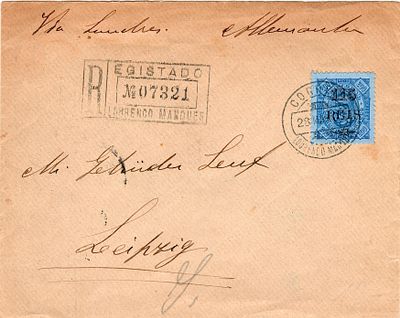 Via Londres. Allemanha
R EGISTADO
No 07321
LOURENÇO MARQUES
CORREIO
28
LOURENÇO MAR
115
REIS
Gebrüder Senf
Leipzig